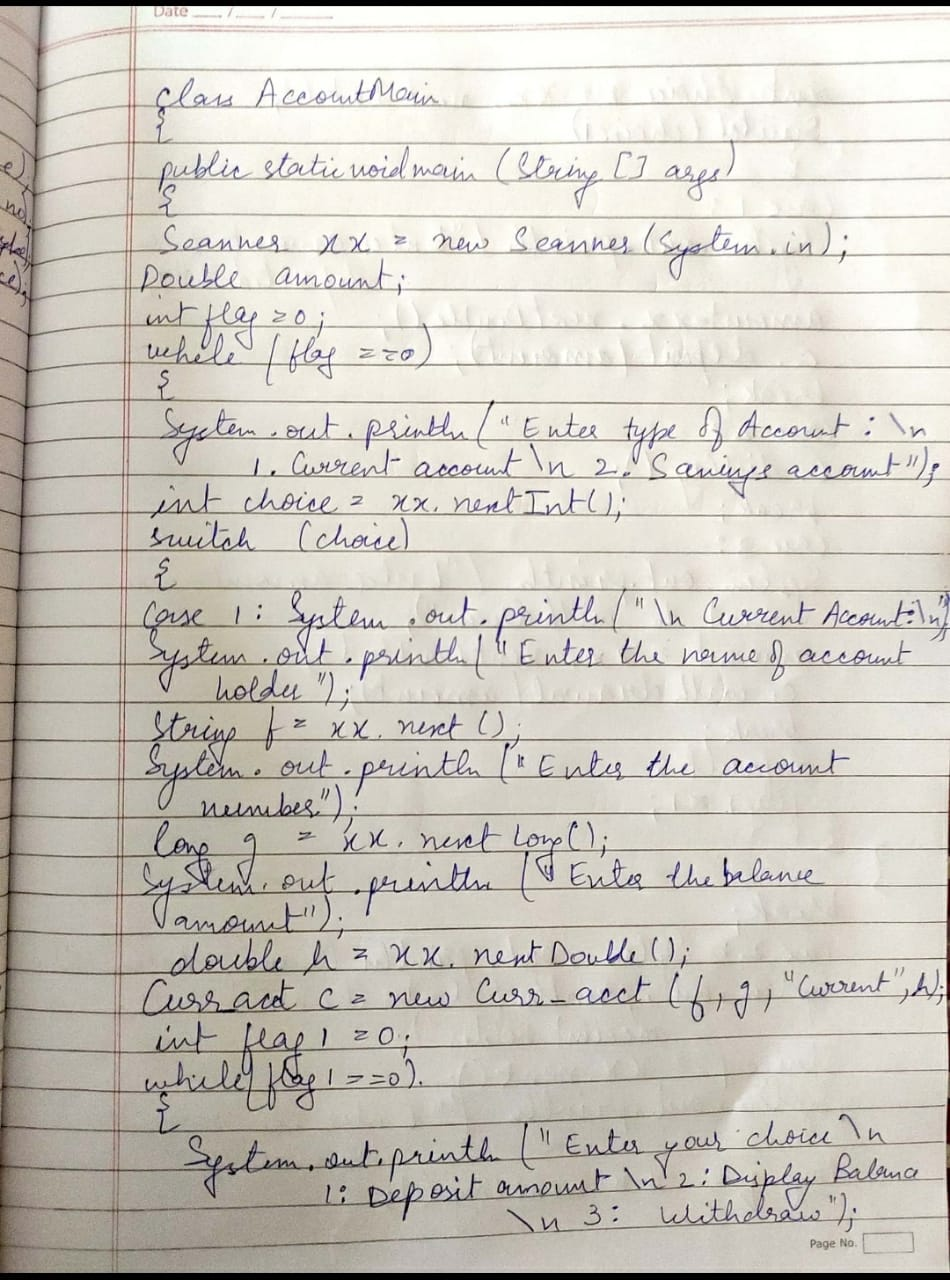 Date __/__/__
class AccountMain
{
public static void main (String [] args)
{
Scanner xx = new Scanner (System.in);
Double amount;
int flag = 0;
while (flag ==0)
{
System.out.println ("Enter type of Account : \n
1. Current account \n 2. Savings account");
int choice = xx.nextInt();
switch (choice)
{
Case 1: System.out.println ("\n Current Account:\n");
System.out.println ("Enter the name of account
holder");
String f = xx.next ();
System.out.println ("Enter the account
number");
long g = xx.next Long();
System.out.println ("Enter the balance
amount");
double h = xx.nextDouble();
Curr_acct c = new Curr_acct (f, g, "Current", h);
int flag 1 = 0;
while (flag 1 ==0)
{
System.out.println ("Enter your choice \n
1: Deposit amount \n 2: Display Balance
\n 3: Withdraw");
Page No.